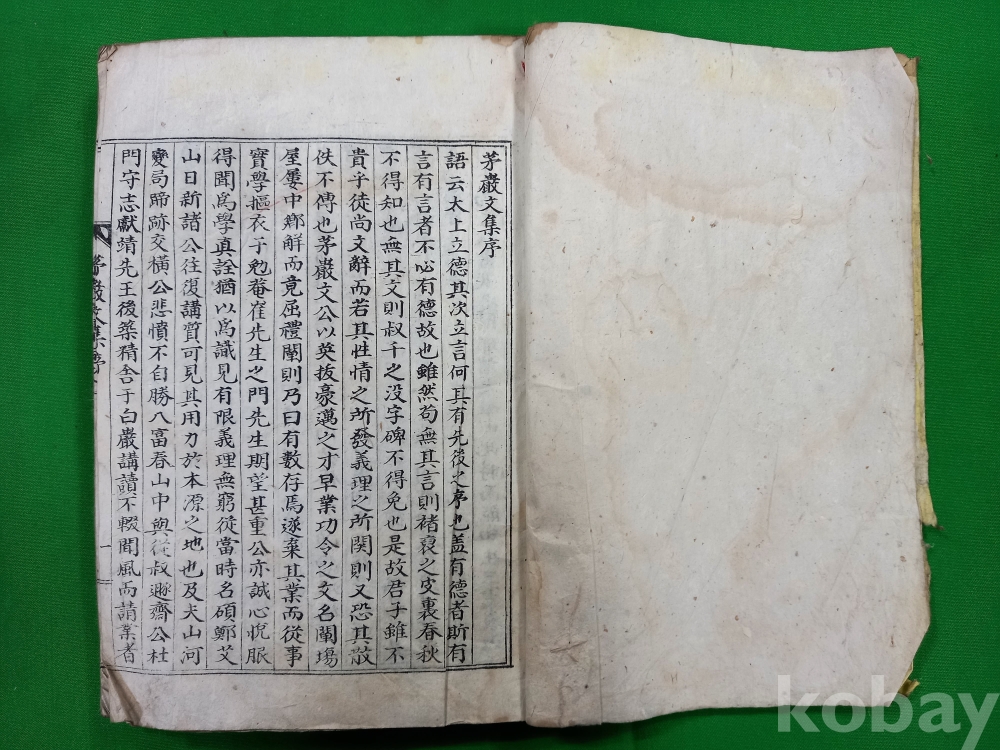 茅巖文集序
語云太上立德其次立言何其有先後之序也盖有德者斯有
言有言者不必有德故也雖然苟無其言則褚裒之皮裏春秋
不得知也無其文則叔千之没字碑不得免也是故君子雖不
貴乎徒尚文辭而若其性情之所發義理之所関則又恐其散
佚不傳也茅巖文公以英拔豪邁之才早業功令之文名闈場
屋屢中鄕解而竟屈禮闈則乃曰有數存焉遂棄其業而從事
實學摳衣于勉菴崔先生之門先生期望甚重公亦誠心悅服
得聞爲學眞詮猶以爲識見有限義理無窮從當時名碩鄭艾
山日新諸公往復講質可見其用力於本源之地也及夫山河
變局蹄跡交橫公悲憤不自勝入富春山中與從叔遯齋公杜
門守志獻靖先王後築精舍于白巖講讀不輟聞風而請業者
茅巖文集序
一
kobay